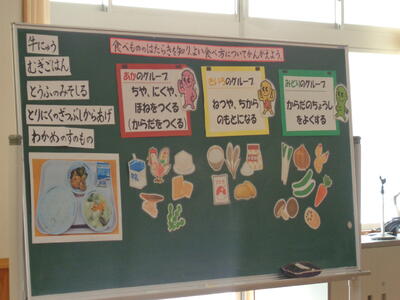 食べもののはたらきを知り、よい食べ方についてかんがえよう。
牛にゅう
むぎごはん
とうふのみそしる
とりにくのざっぷしからあげ
わかめのすのもの
あかのグループ
ちや、にくや、
ほねをつくる
(からだをつくる)
きいろのグループ
ねつや、ちから
のもとになる
みどりのグループ
からだのちょうし
をよくする